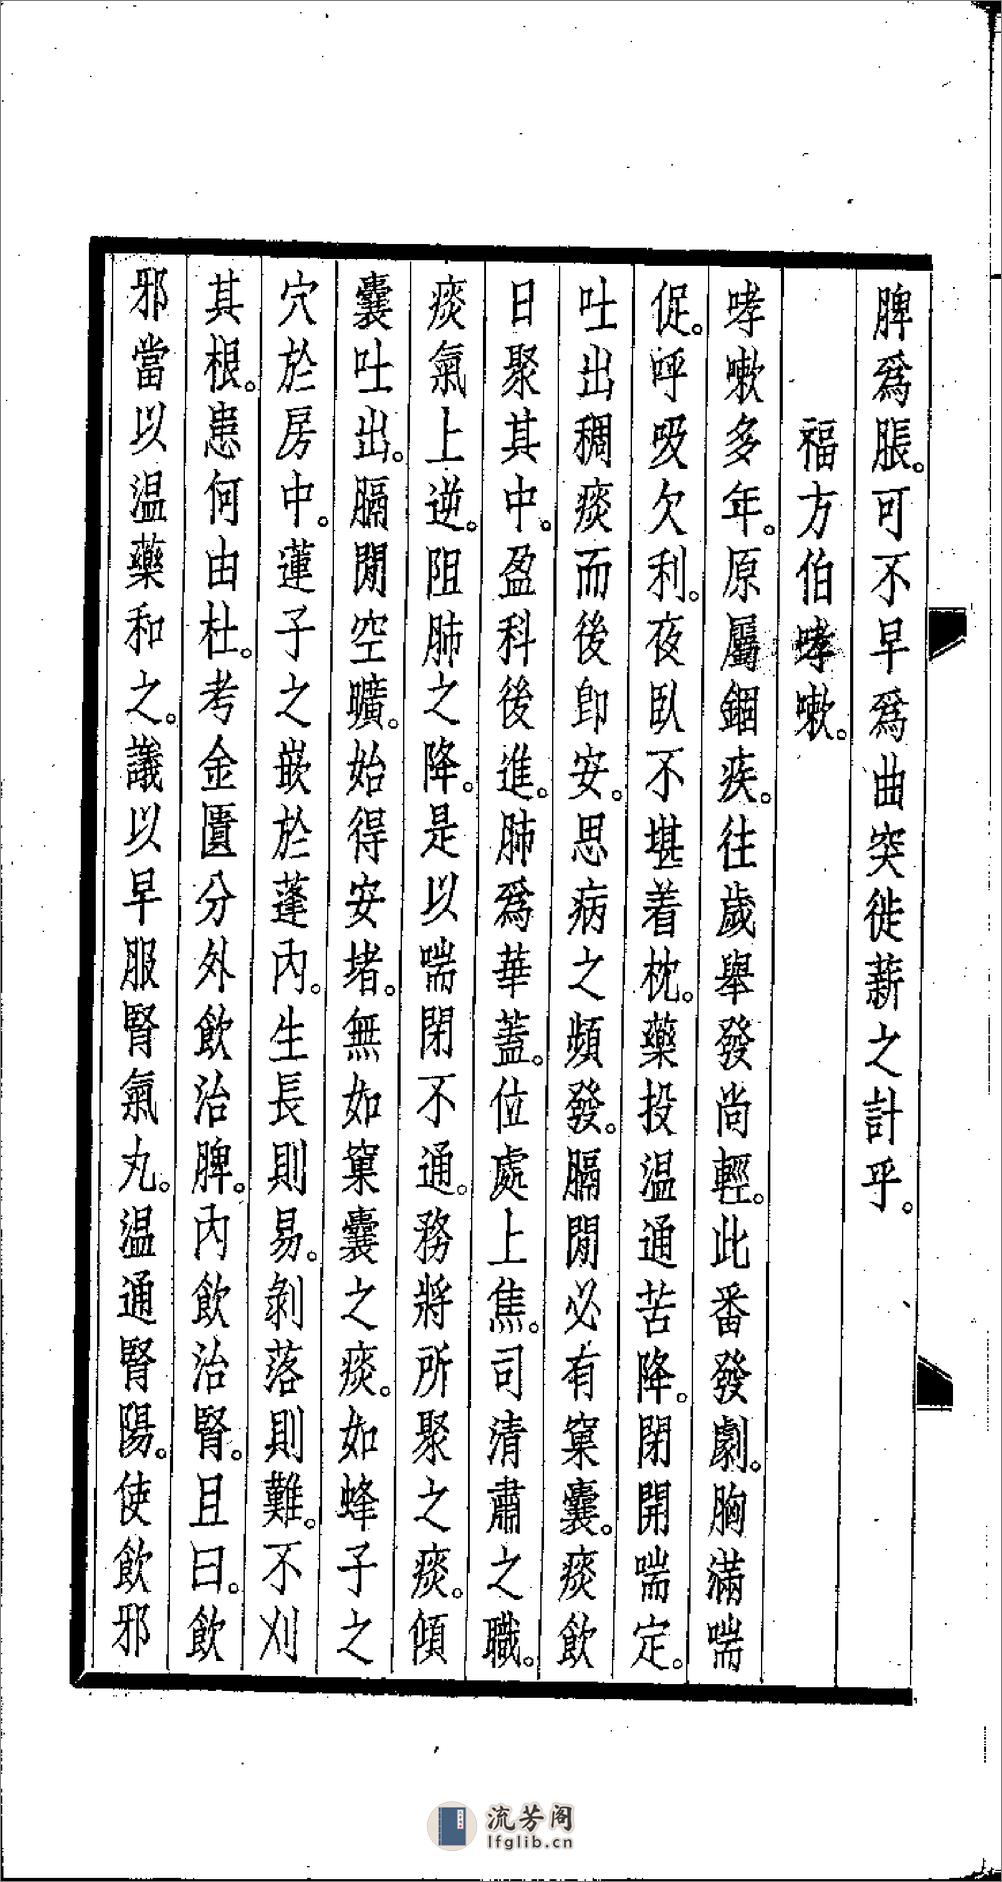 脾爲脹。可不早爲曲突徙薪之計乎。
福方伯哮嗽。
哮嗽多年。原屬錮疾。往歲舉發尚輕。此番發劇。胸滿喘
促。呼吸欠利。夜臥不堪着枕。藥投温通苦降。閉開喘定。
吐出稠痰而後卽安。思病之頻發。膈閒必有窠囊。痰飲
日聚其中。盈科後進。肺爲華蓋。位處上焦。司清肅之職。
痰氣上逆。阻肺之降。是以喘閉不通。務將所聚之痰。傾
囊吐出。膈閒空曠。始得安堵。無如窠囊之痰。如蜂子之
穴於房中。蓮子之嵌於蓬內。生長則易。剝落則難。不刈
其根。患何由杜。考金匱分外飲治脾。內飲治腎。且曰。飲
邪當以温藥和之。議以早服腎氣丸。温通腎陽。使飲邪
流芳阁
lfglib.cn